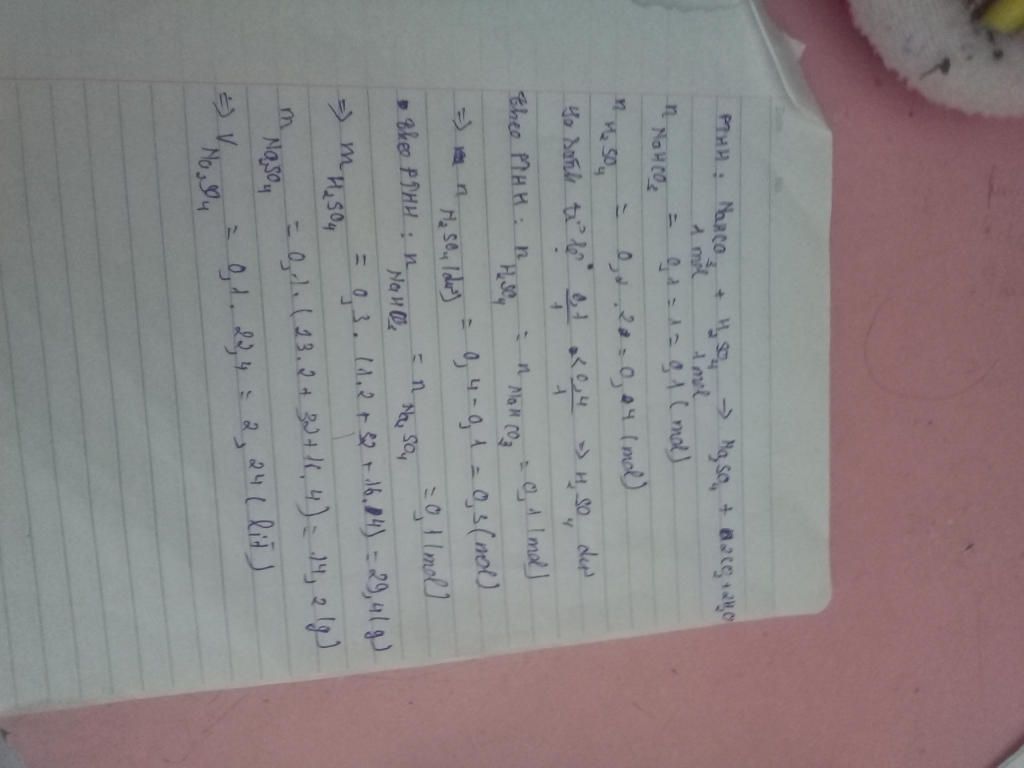 PTHH : NaHCO3 + H2SO4 → Na2SO4 + 2CO2 + 2H2O
1 mol 1 mol
n NaHCO3 = 0,1 . 1 = 0,1 (mol)
n H2SO4 = 0,2 . 2 = 0,4 (mol)
tỉ lệ : 0,1/1 < 0,4/1 => H2SO4 dư
Theo PTHH : n H2SO4 = n NaHCO3 = 0,1 (mol)
=> n H2SO4 (dư) = 0,4 - 0,1 = 0,3 (mol)
Theo PTHH : n NaHCO3 = n Na2SO4 = 0,1 (mol)
=> m H2SO4 = 0,3 . (1.2 + 32 + 16.4) = 29,4 (g)
m Na2SO4 = 0,1 . (23.2 + 32 + 16.4) = 14,2 (g)
=> V Na2SO4 = 0,1 . 22,4 = 2,24 (lít)